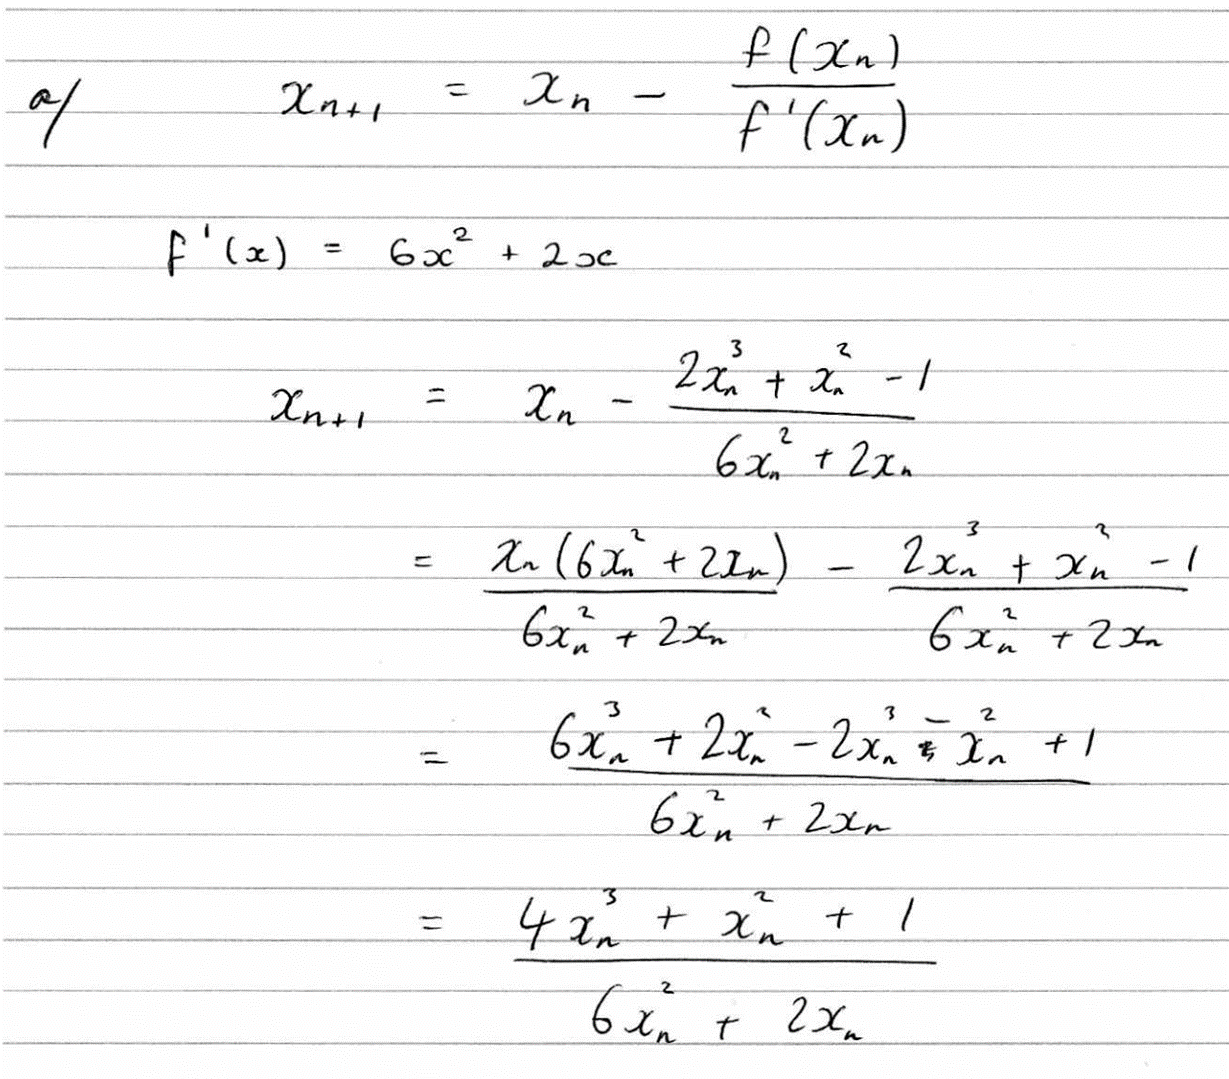 a/ xₙ₊₁ = xₙ - f(xₙ) / f'(xₙ)
f'(x) = 6x² + 2x
xₙ₊₁ = xₙ - (2xₙ³ + xₙ² - 1) / (6xₙ² + 2xₙ)
= xₙ(6xₙ² + 2xₙ) / (6xₙ² + 2xₙ) - (2xₙ³ + xₙ² - 1) / (6xₙ² + 2xₙ)
= (6xₙ³ + 2xₙ² - 2xₙ³ - xₙ² + 1) / (6xₙ² + 2xₙ)
= (4xₙ³ + xₙ² + 1) / (6xₙ² + 2xₙ)